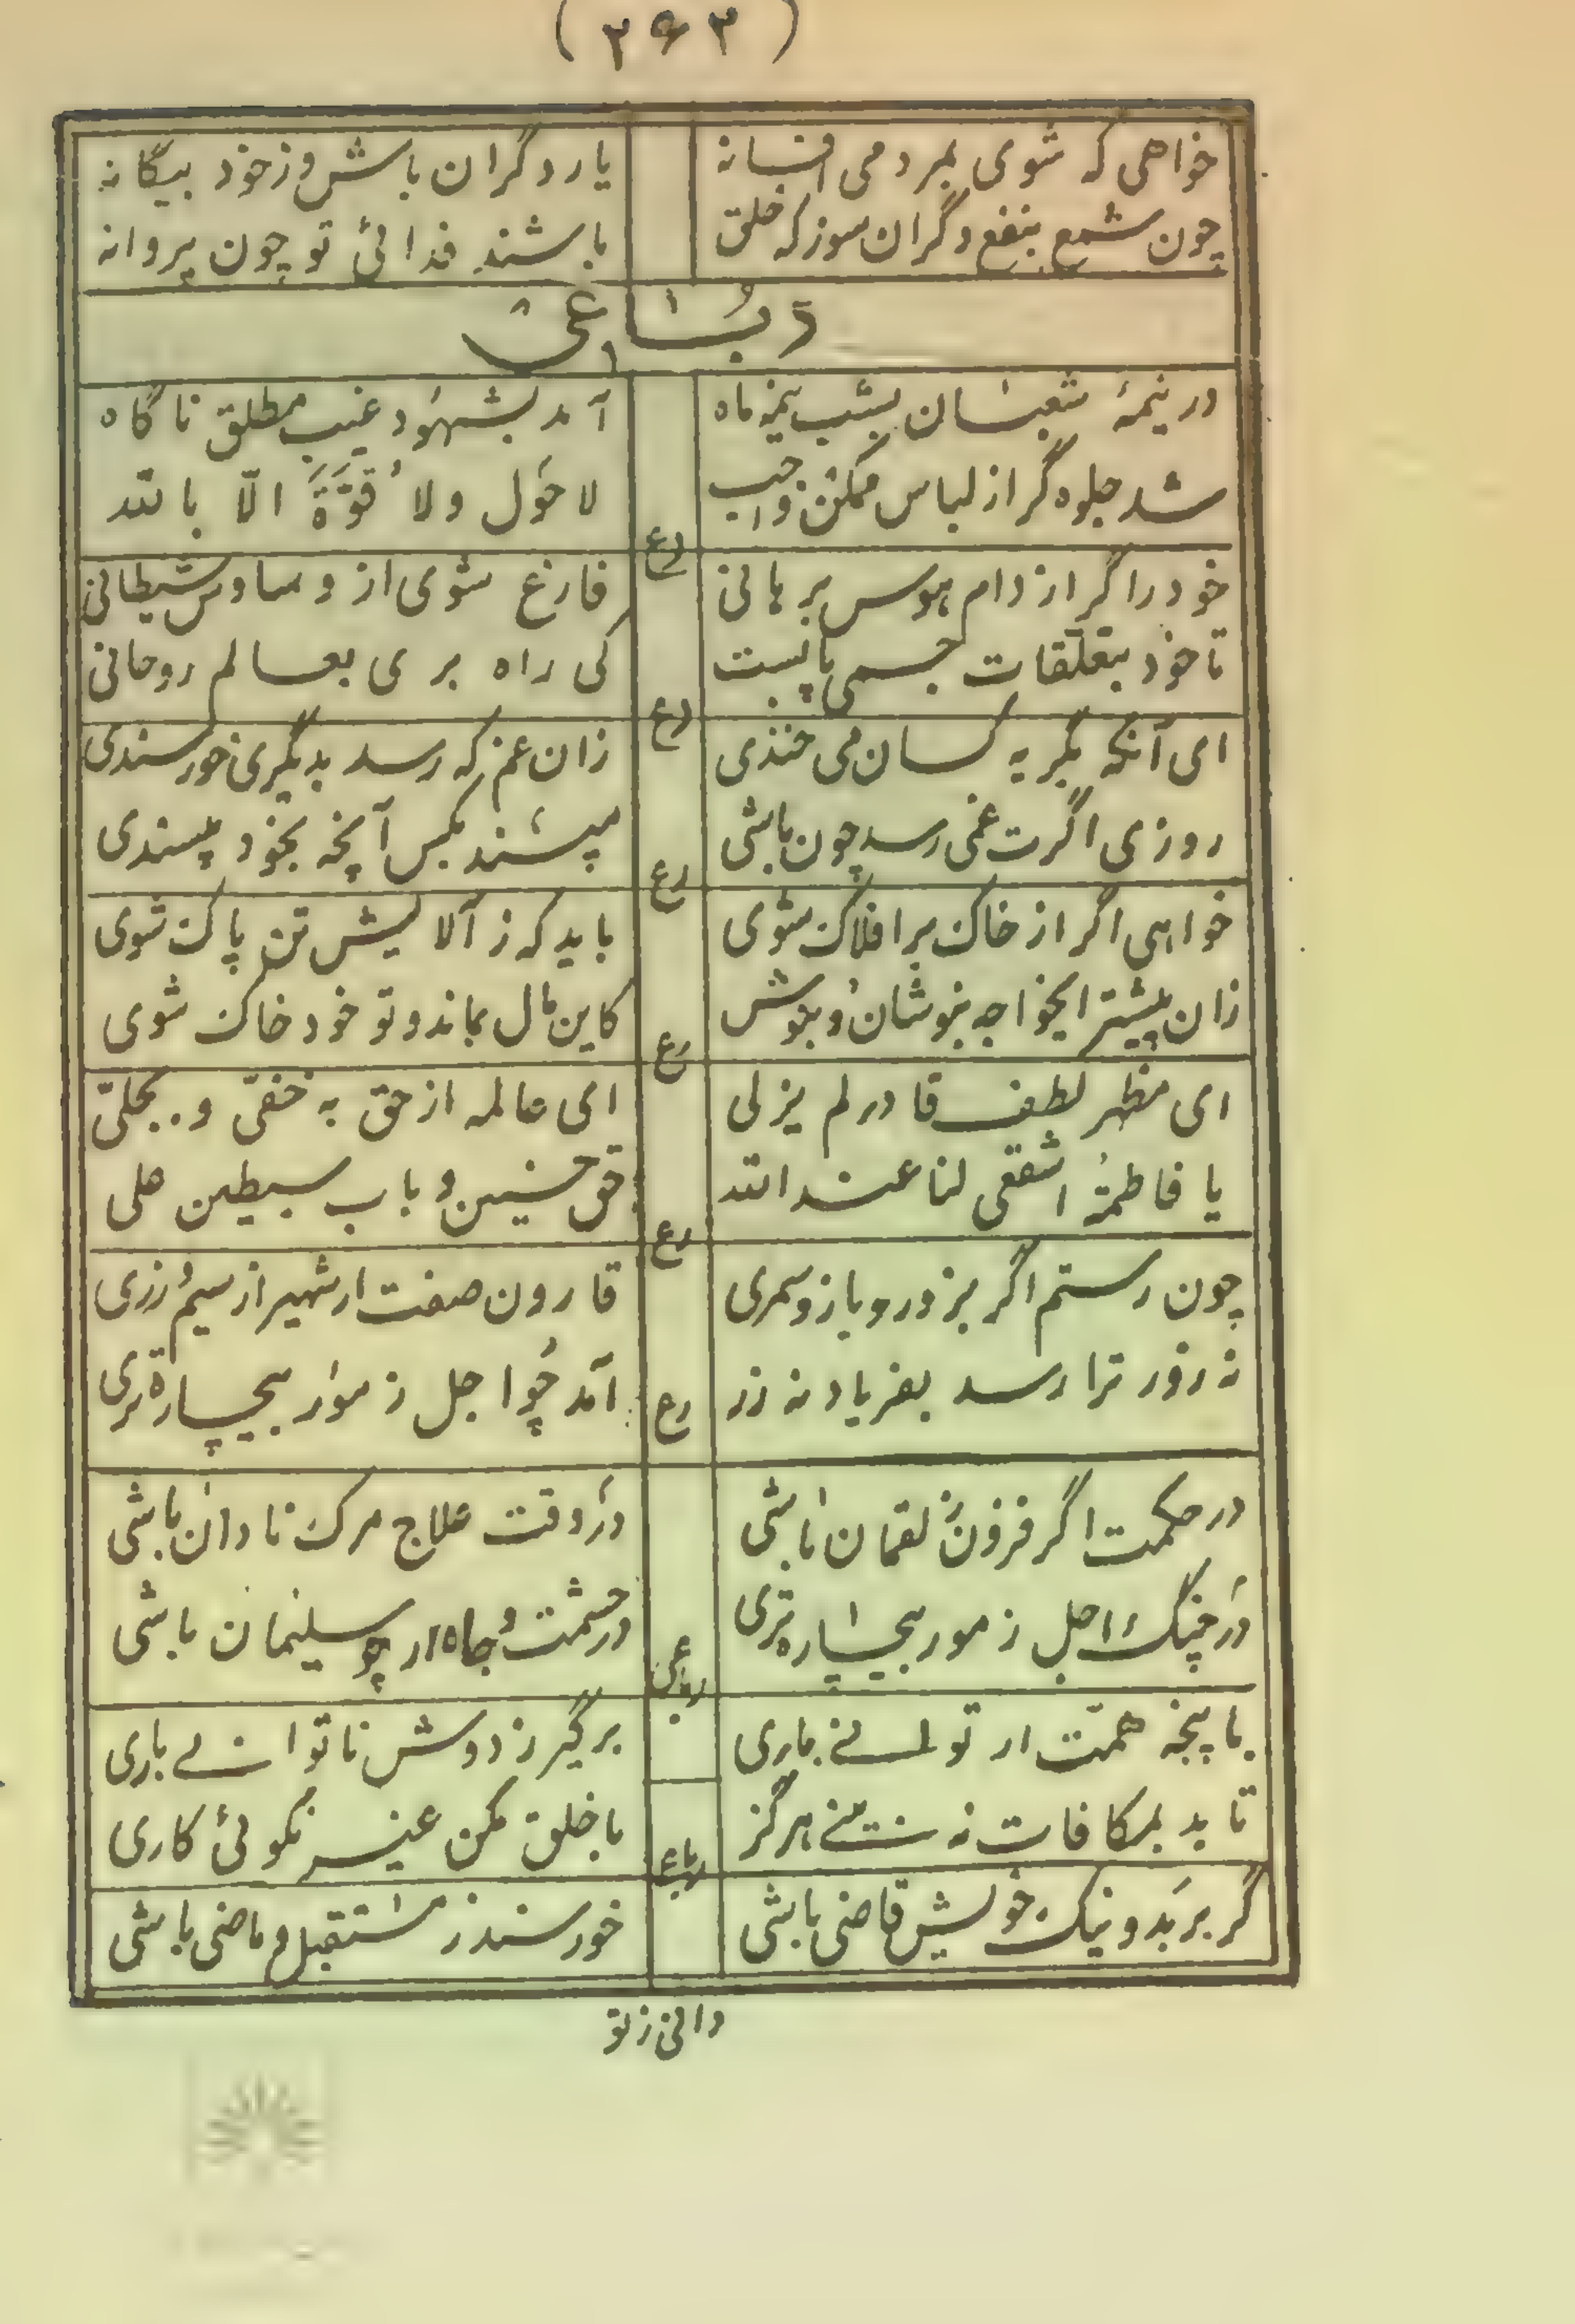 (۲۶۳)
خواهی که شوی بمردمی افسانه یار دگران باش و زخود بیگانه
چون شمع بنفع دگران سوز که خلق باشند فدائی تو چون پروانه
رباعی
در نیمهٔ شعبان بشب نیمهٔ ماه آمد بشهود غیب مطلق ناگاه
شد جلوه گر از لباس ممکن واجب لا حَول ولا قوّةَ الّا بالله
رع
خود را اگر از دام هوس برهانی فارغ شوی از وساوس شیطانی
تا خود بتعلّقات جسمی پابست کی راه بری بعالم روحانی
رع
ای آنکه بگریه کسان می خندی زان غم که رسد بدیگری خورسندی
روزی اگرت غمی رسد چون باشی مپسند بکس آنچه بخود پسندی
رع
خواهی اگر از خاک بر افلاک شوی باید که ز آلایش تن پاک شوی
زان پیشتر ایخواجه بنوشان و بنوش کاین مال بماند و تو خود خاک شوی
رع
ای مظهر لطف قادر لم یزلی ای عالمه از حق به خفیّ و بجلیّ
یا فاطمةُ اشفعی لنا عند الله حق حسنین و باب سبطین علی
رع
چون رستم اگر بزور و بازو سمری قارون صفت ار شهیر از سیم و زری
نه زور ترا رسد بفریاد نه زر آمد چو اجل ز مور بیچاره تری
رع
در حکمت اگر فزون ز لقمان باشی در وقت علاج مرک نادان باشی
در چنک اجل ز مور بیچاره تری در حشمت و جاه ار چو سلیمان باشی
رباعی
با پنجه همّت ار توانی باری برگیر ز دوش ناتوانی باری
تا بد بمکافات نه بینی هرگز با خلق مکن غیر نکوئی کاری
رباع
گر بر بد و نیک خویش قاضی باشی خورسند ز مستقبل و ماضی باشی